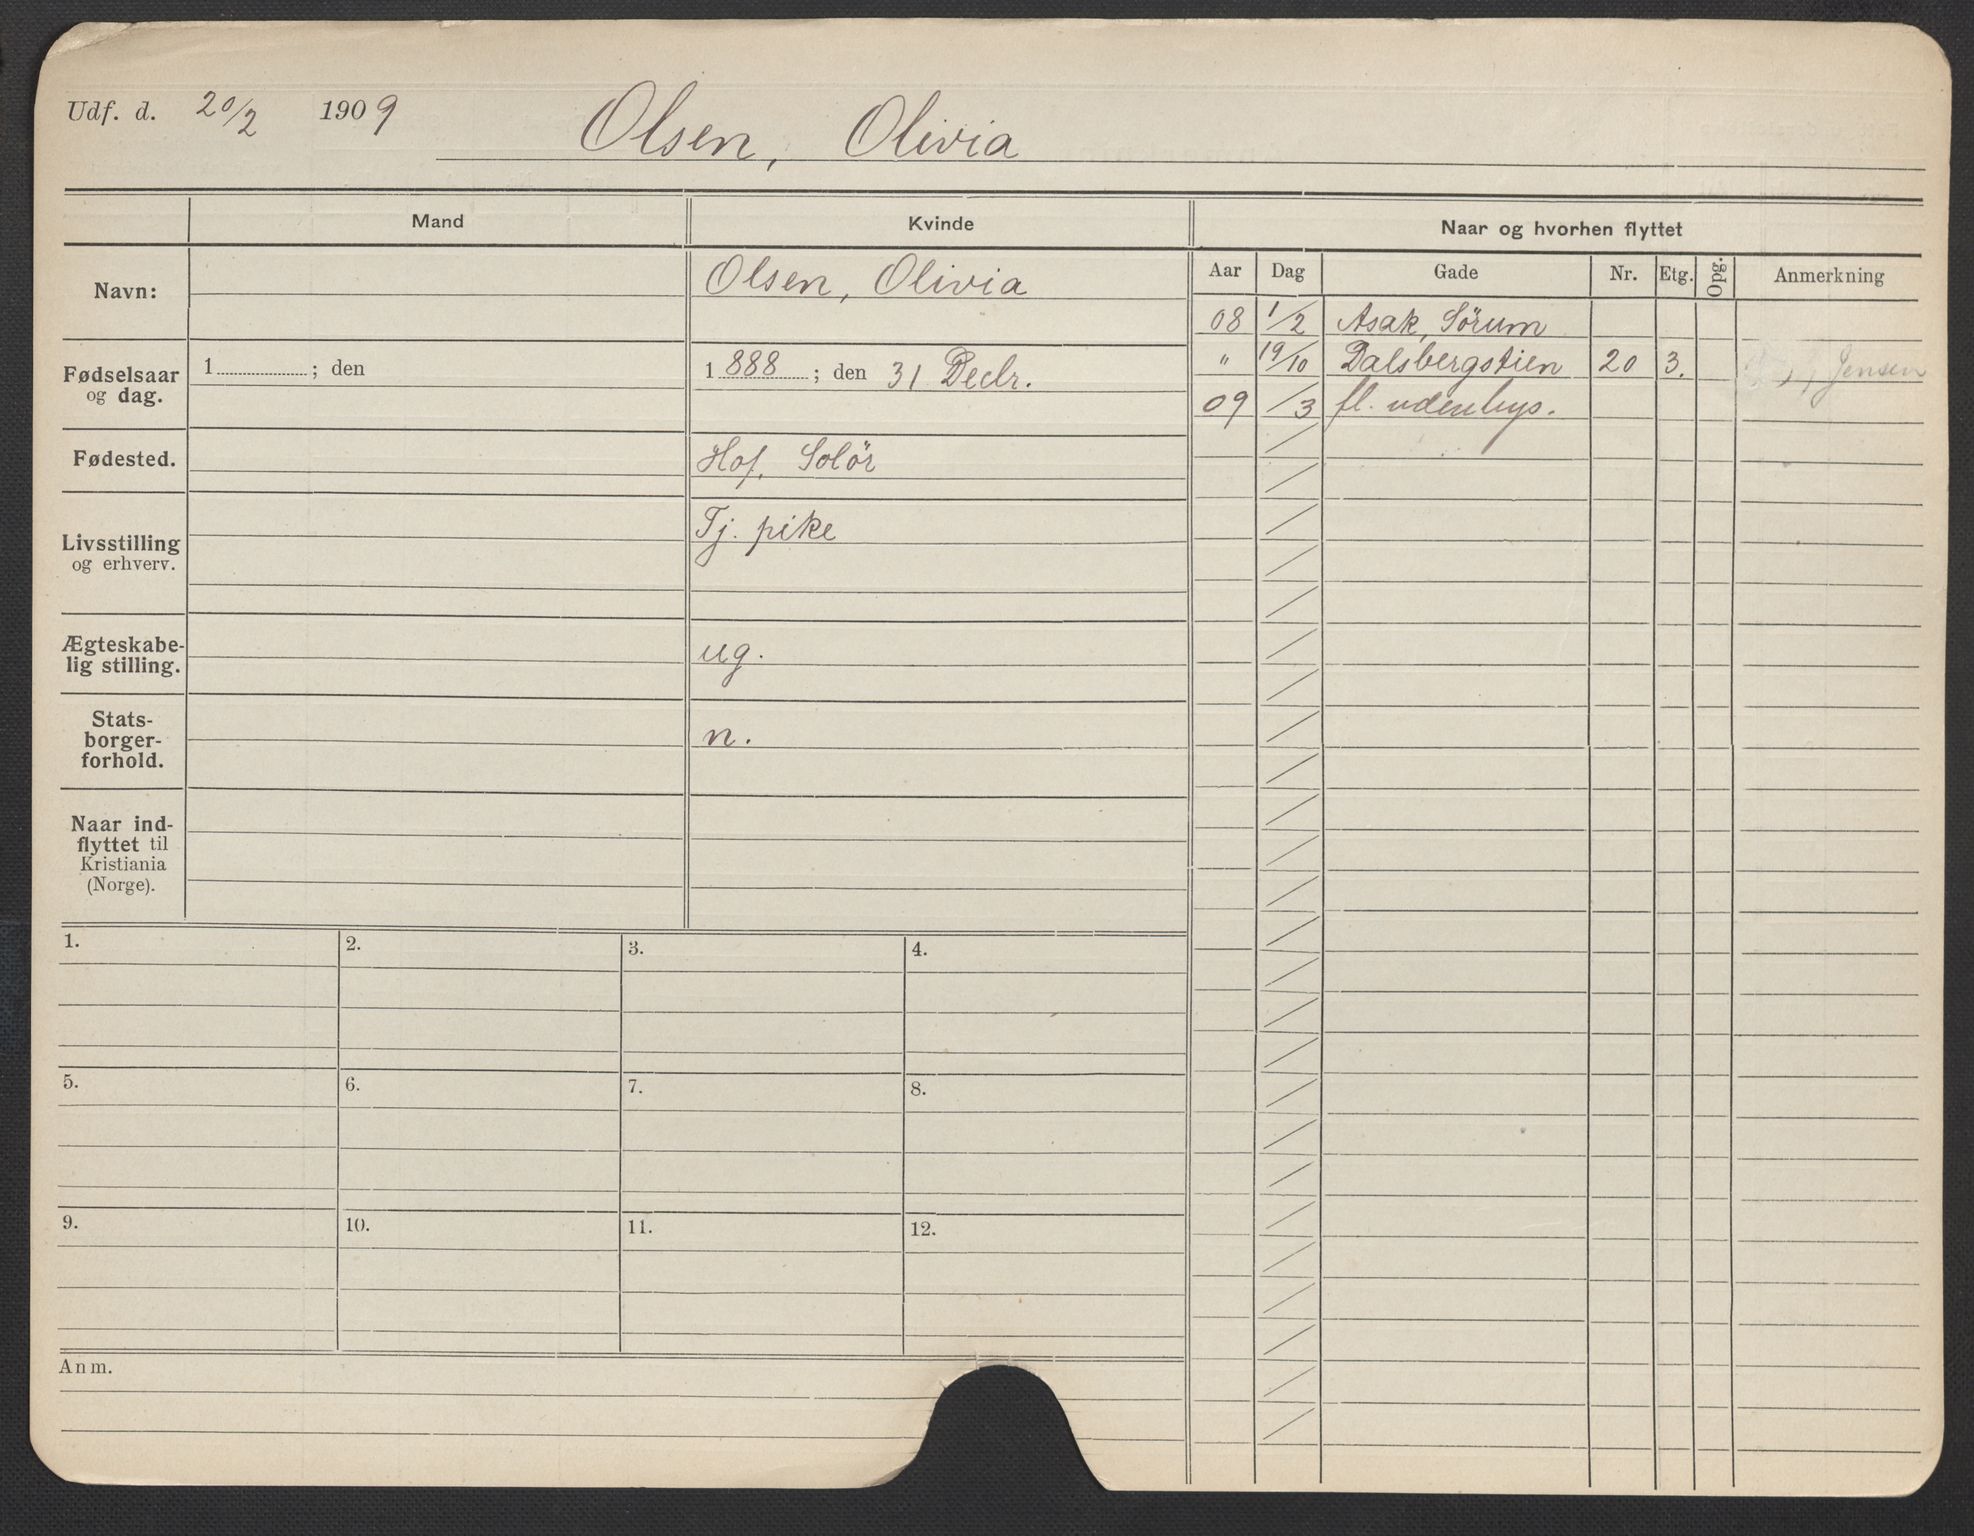 Udf. d. 20/2 1909 Olsen, Olivia
Mand Kvinde Naar og hvorhen flyttet
Navn: Olsen, Olivia
Fødselsaar og dag. 1 ; den 1888 ; den 31 Decbr.
Fødested. Hof, Solör
Livsstilling og erhverv. Tj. pike
Ægteskabe-
lig stilling. ug.
Stats-
borger-
forhold. n.
Naar ind-
flyttet til
Kristiania
(Norge).
Aar Dag Gade Nr. Etg. Opg. Anmerkning
08 1/2 Asak, Sörum
" 19/10 Dalsbergstien 20 3. Jensen
09 /3 fl. udenbys.
1. 2. 3. 4.
5. 6. 7. 8.
9. 10. 11. 12.
Anm.